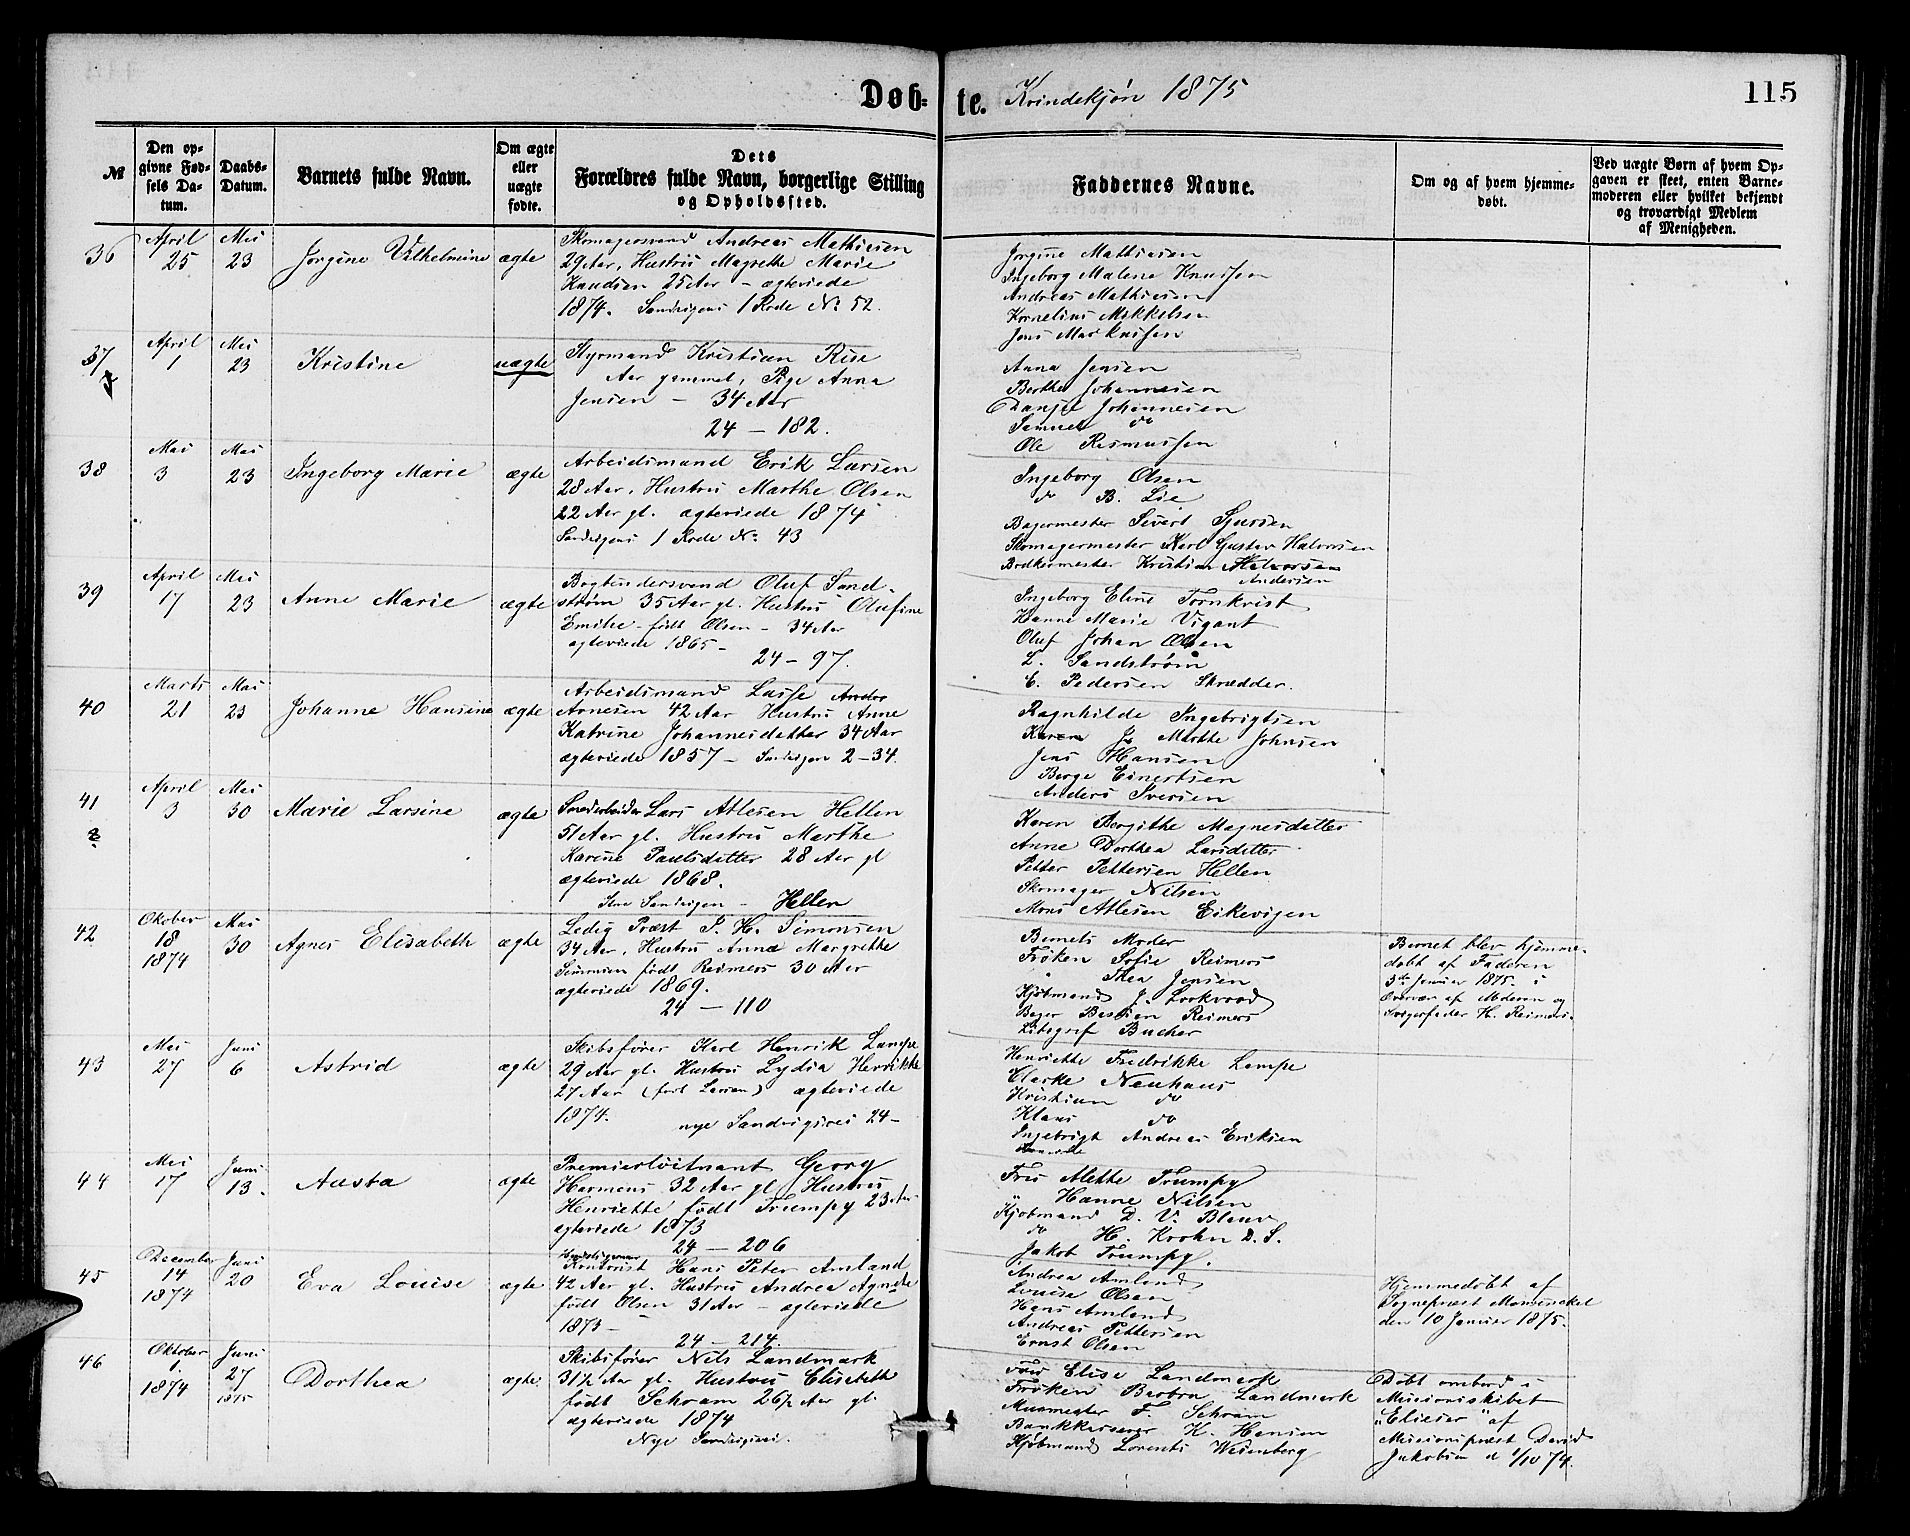 Døb-te. Kvindekjøn 1875
115
№
Den opgivne Fødsels Datum.
Daabs-Datum.
Barnets fulde Navn.
Om ægte eller uægte fødte.
Dets Forældres fulde Navn, borgerlige Stilling og Opholdssted.
Faddernes Navne.
Om og af hvem hjemmedøbt.
Ved uægte Børn af hvem Opgaven er skeet, enten Barnemoderen eller hvilket bekjendt og troværdigt Medlem af Menigheden.
36 April 25 Mai 23 Jørgine Vilhelmine ægte
Skomagersvend Andreas Mathiesen
29 Aar, Hustru Magrethe Marie
Knudsen 25 Aar - ægteviede
1874. Sandvigens 1 Rode No 52.
Jørgine Mathiesen
Ingeborg Malene Knudsen
Andreas Mathiesen
Kornelius Mikkelsen
Jens Markussen
37 April 1 Mai 23 Kristine uægte
Styrmand Kristian Riise
Aar gammel, Pige Anna
Jensen - 34 Aar
24 - 182.
Anna Jensen
Berthe Johannesen
Danjel Johannesen
Samuel do
Ole Rasmussen
38 Mai 3 Mai 23 Ingeborg Marie ægte
Arbeidsmand Erik Larsen
28 Aar, Hustru Marthe Olsen
22 Aar gl. ægteviede 1874
Sandvigens 1 Rode No. 43
Ingeborg Olsen
do B. Lie
Bagermester Sivert Sjursen
Skomagermester Karl Gustav Halvorsen
Bødkermester Kristian Halvorsen
Andersen
39 April 17 Mai 23 Anne Marie ægte
Bogbindersvend Oluf Sand-
strøm 35 Aar gl. Hustru Olufine
Emilie - født Olsen - 34 Aar
ægteviede 1865 -
24 - 97.
Ingeborg Eline Tornkvist
Hanne Marie Vigant
Oluf Johan Olsen
L. Sandstrøm
E. Pedersen Skrædder.
40 Marts 21 Mai 23 Johanne Hansine ægte
Arbeidsmand Lasse Andr
Arnesen 42 Aar Hustru Anne
Katrine Johannesdatter 34 Aar
ægteviede 1857 - Sandvigen 2-34.
Ragnhilde Ingebrigtsen
Karen J. Marthe Johnsen
Jens Hansen
Berge Einertsen
Anders Iversen
41 April 3 Mai 30 Marie Larsine ægte
Lars Atlesen Hellen
51 Aar gl. Hustru Marthe
Karine Paulsdatter 28 Aar gl
ægteviede 1868.
Sandvigen - Hellen
Karen Bergithe Magnesdatter
Anne Dorthea Larsdatter
Petter Pettersen Hellen
Skomager Nilsen
Mons Atlesen Eikevigen
42 Oktober 18 1874 Mai 30 Agnes Elisabeth ægte
Ledig Præst P. H. Simonsen
34 Aar, Hustru Anna Margrethe
Simonsen født Reimers 30 Aar
ægteviede 1869.
24 - 110
Barnets Moder
Frøken Sofie Reimers
" Thea Jensen
Kjøbmand J. Lockvood
Bager Bastian Reimers
Litograf Bucher
Barnet blev hjemme-
døbt af Faderen
3de Januar 1875. i
Overvær af Moderen og
Svigerfader H. Reimers.
43 Mai 27 Juni 6 Astrid ægte
Skibsfører Karl Henrik Lampe
29 Aar gl. Hustru Lydia Henrikke
27 Aar (født Larsen) ægteviede
1874. nye Sandvigsvei 24-
Henriette Fredrikke Lampe
Clarke Neuhaus
Kristian do
Klaus do
Ingebrigt Andreas Eriksen
44 Mai 17 Juni 13. Aasta ægte
Premierløitnant Georg
Harmens 32 Aar gl. Hustru
Henriette født Trumpy 23 Aar
ægteviede 1873
24 - 206
Fru Alette Trumpy
" Hanne Nilsen
Kjøbmand D. V. Blauw
do H. Krohn D. S.
Jakob Trumpy.
45 December 14 1874 Juni 20 Eva Louise ægte
Kontorist Hans Peter Amland
42 Aar gl. Hustru Andrea Agnete
født Olsen 31 Aar - ægteviede
1873 -
24 - 214.
Andrea Amland
Louise Olsen
Hans Amland
Andreas Pettersen
Ernst Olsen
Hjemmedøbt af
Sognepræst
den 10 Januar 1875.
46 Oktober 1. 1874 Juni 27 1875 Dorthea ægte.
Skibsfører Nils Landmark
31½ Aar gl. Hustru Elisabeth
født Schram 26½ Aar gl.
ægteviede 1874
Nye Sandvigsvei.
Fru Elise Landmark
Frøken Barbra Landmark
F. Schram
Bankkasserer K. Hansen
Kjøbmand Lorents Wesenberg
Døbt ombord i
Missionsskibet
"Elieser" af
Missionspræst David
Jakobsen d 1/10 74.